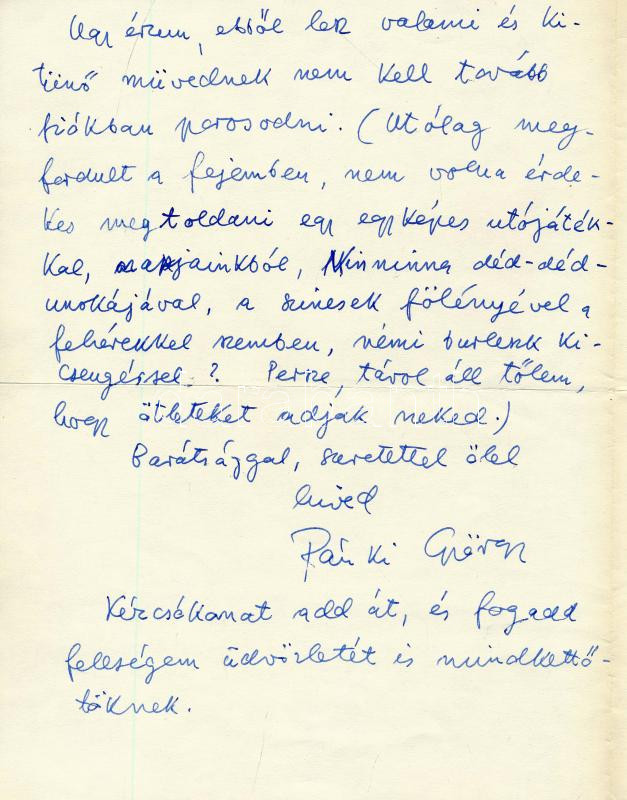 Úgy érzem, ebből lesz valami és ki-
tünő művednek nem kell tovább
fiókban porosodni. (Utólag meg-
fordult a fejemben, nem volna érde-
kes megtoldani egy egyképes utójáték-
kal, napjainkból, Ninninna déd-déd-
unokájával, a szinesek fölényével a
fehérekkel szemben, némi burleszk ki-
csengéssel.? Persze, távol áll tőlem,
hogy ötleteket adjak neked.)
Barátsággal, szeretettel ölel
hived
Ránki György
Kézcsókomat add át, és fogadd
feleségem üdvözletét is mindkettő-
töknek.